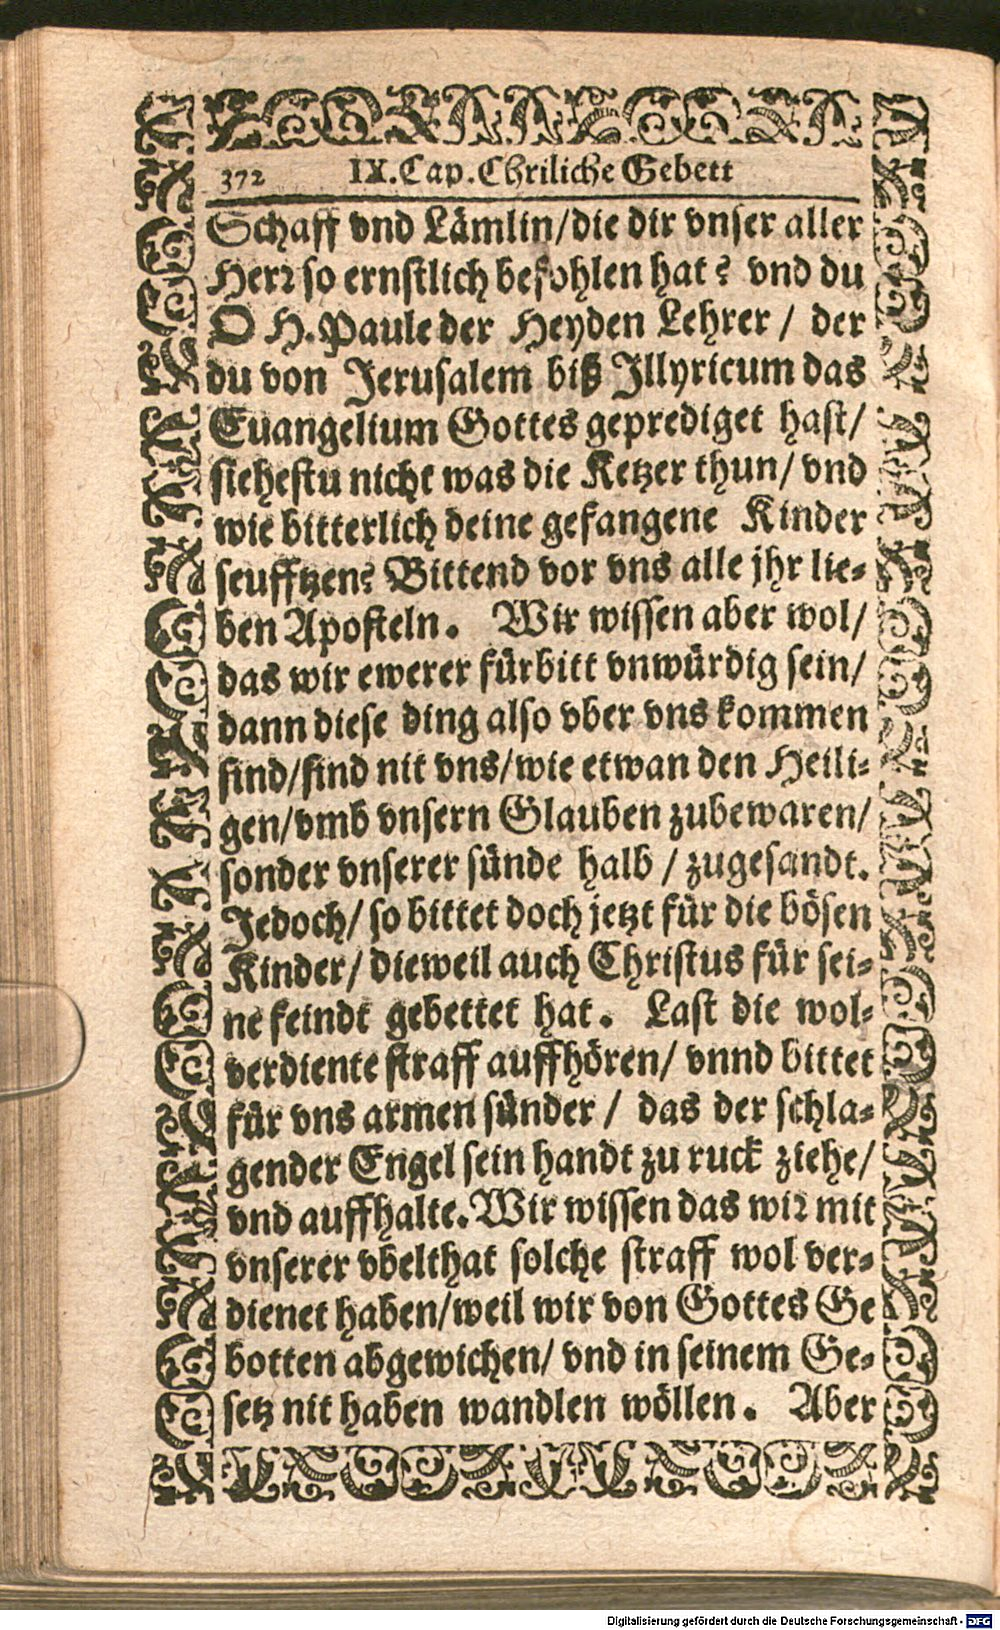 372 IX. Cap. Chriliche Gebett
Schaff vnd Lämlin/die dir vnser aller
Herr so ernstlich befohlen hat? vnd du
O H. Paule der Heyden Lehrer / der
du von Jerusalem biß Jllyricum das
Euangelium Gottes geprediget hast/
siehestu nicht was die Ketzer thun/ vnd
wie bitterlich deine gefangene Kinder
seufftzen? Bittend vor vns alle jhr lie-
ben Aposteln. Wir wissen aber wol/
das wir ewerer fürbitt vnwürdig sein/
dann diese ding also vber vns kommen
sind/sind nit vns/wie etwan den Heili-
gen/vmb vnsern Glauben zubewaren/
sonder vnserer sünde halb / zugesandt.
Jedoch/ so bittet doch jetzt für die bösen
Kinder/ dieweil auch Christus für sei-
ne feindt gebettet hat. Last die wol-
verdiente straff auffhören/ vnnd bittet
für vns armen sünder / das der schla-
gender Engel sein handt zu ruck ziehe/
vnd auffhalte. Wir wissen das wir mit
vnserer vbelthat solche straff wol ver-
dienet haben/weil wir von Gottes Ge
botten abgewichen/ vnd in seinem Ge-
setz nit haben wandlen wöllen. Aber
Digitalisierung gefördert durch die Deutsche Forschungsgemeinschaft - DFG